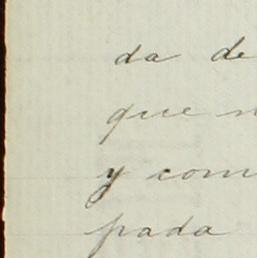 da de
que
y com
pada